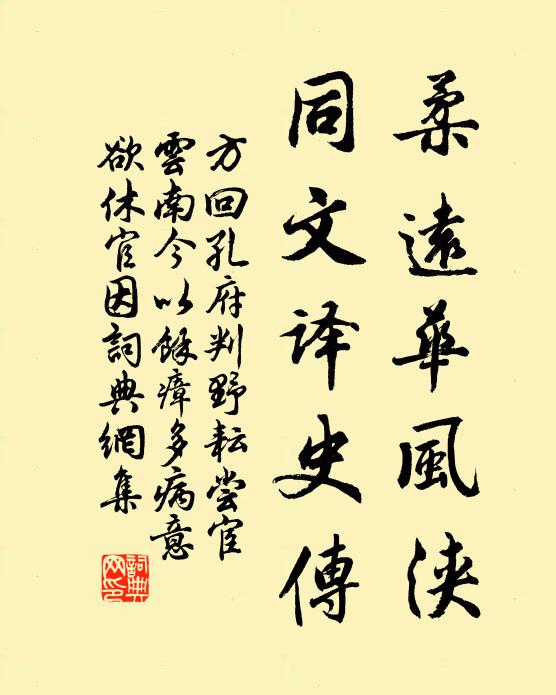 柔遠華風浹
同文译史傳
方回孔府判野耘尝宦
雲南今以餘瘴多病意
欲休官因詞典網集
詞典网印